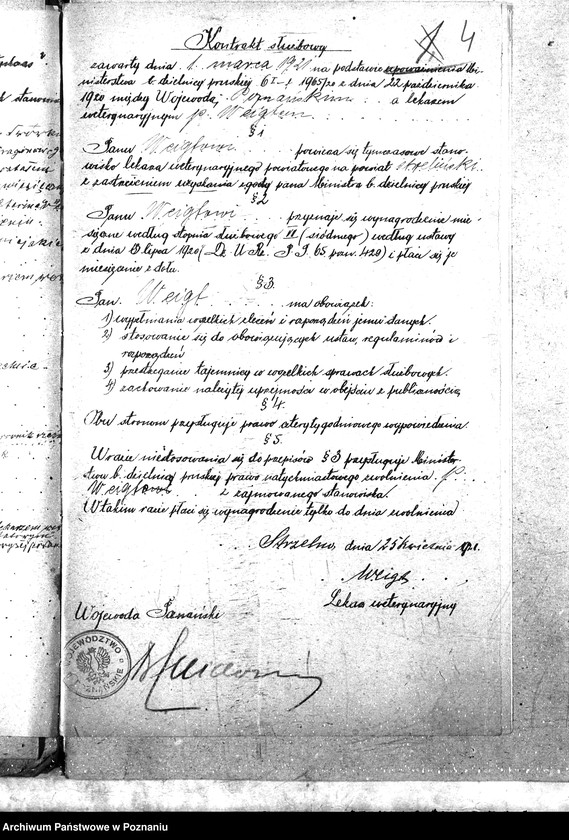 4
Kontrakt służbowy
zawarty dnia 1. marca 1921 na podstawie upoważnienia Mi-
nisterstwa b. dzielnicy pruskiej z dnia 22 października
1920 między Wojewodą Poznańskim a lekarzem
weterynaryjnym p. Weigtem
§ 1
Panu Weigtowi powierza się tymczasowe stano-
wisko lekarza weterynaryjnego powiatowego na powiat strzeliński
z zastrzeżeniem uzyskania zgody pana Ministra b. dzielnicy pruskiej
§ 2
Panu Weigtowi przyznaje się wynagrodzenie mie-
sięczne według stopnia służbowego VII (siódmego) według ustawy
z dnia 13 lipca 1920 (Dz. U. Rz. P. 65 poz. 429) i płaci się je
miesięcznie z dołu.
§ 3.
Pan Weigt ma obowiązek:
1) wypełniania wszelkich zleceń i rozporządzeń jemu danych.
2) stosowanie się do obowiązujących ustaw, regulaminów i
rozporządzeń
3) przestrzeganie tajemnicy w wszelkich sprawach służbowych.
4) zachowanie należytej uprzejmości w obejściu z publicznością
§ 4.
Obu stronom przysługuje prawo czterytygodniowego wypowiedzenia.
§ 5.
W razie niestosowania się do przepisów § 3 przysługuje Minister-
stwu b. dzielnicy pruskiej prawo natychmiastowego zwolnienia p.
Weigtowi z zajmowanego stanowiska.
W takim razie płaci się wynagrodzenie tylko do dnia zwolnienia
Strzelno, dnia 25 kwietnia 1921.
Weigt
Lekarz weterynaryjny
Wojewoda Poznański
WOJEWÓDZTWO POZNAŃSKIE
Archiwum Państwowe w Poznaniu